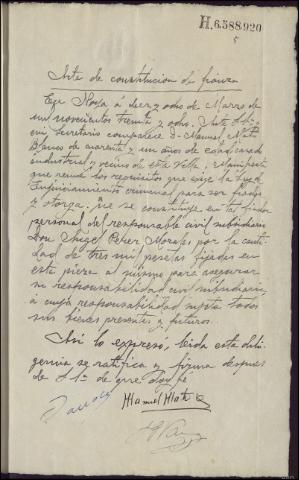 H.6.588.920
Acta de constitucion de fianza
En Noya á diez y ocho de Marzo de
mil novecientos treinta y ocho. Ante S.Sª y
mi Secretario comparece D. Manuel Mato
Blanco de cuarenta y un años de edad casado
industrial y vecino de esta Villa. Manifiesta
que reune los requisitos que exige la Ley de
Enjuiciamiento criminal para ser fiador
y otorga: que se constituye en tal fiador
personal del responsable civil subsidiario
Don Angel Perez Morales, por la canti
dad de tres mil pesetas fijadas en
esta pieza al mismo para asegurar
su responsabilidad civil subsidiaria
á cuya responsabilidad sujeta todos
sus bienes presentes y futuros.
Asi lo expresó, leida esta dili
gencia se ratifica y firma despues
de S.Sª de que doy fé
Manuel Mato